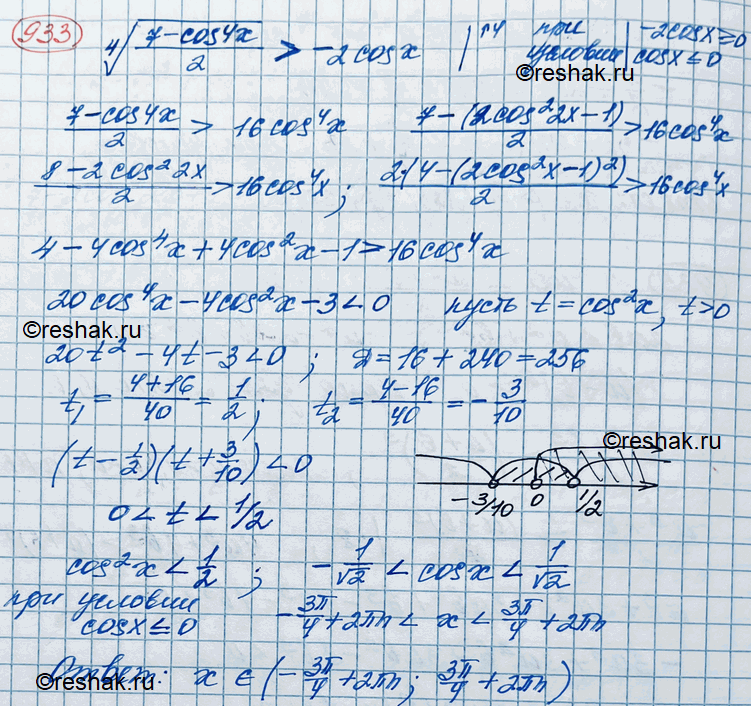 933 ⁴√((7-cos4x)/2) > -2cosx | ↑4 при условии | -2cosx≥0 cosx≤0
©reshak.ru
©reshak.ru
(7-cos4x)/2 > 16cos⁴x (7-(2cos²2x-1))/2 > 16cos⁴x
(8-2cos²2x)/2 > 16cos⁴x; (2(4-(2cos²x-1)²))/2 > 16cos⁴x
4-4cos⁴x+4cos²x-1 > 16cos⁴x
20cos⁴x-4cos²x-3<0 пусть t=cos²x, t>0
©reshak.ru
20t²-4t-3<0; D=16+240=256
t₁=(4+16)/40=1/2; t₂=(4-16)/40=-3/10
©reshak.ru
(t-1/2)(t+3/10)<0
-3/10 0 1/2
0<t<1/2
cos²x<1/2; -1/√2<cosx<1/√2
при условии cosx≤0 -3π/4+2πn < x < 3π/4+2πn
Ответ: x∈(-3π/4+2πn; 3π/4+2πn)
©reshak.ru
©reshak.ru